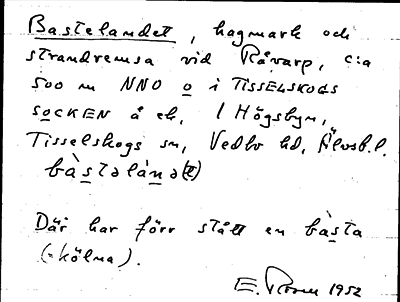 Bastelandet, hagmark och
strandremsa vid Råvarp, c:a
500 m NNO o i TISSELSKOGS
SOCKEN å ek. 1 Högsbyn,
Tisselskogs sn, Vedbo hd, Älvsb.l.
bàstəlànd(ət)
Där har förr stått en bàsta
(=kölna).
E. 1952